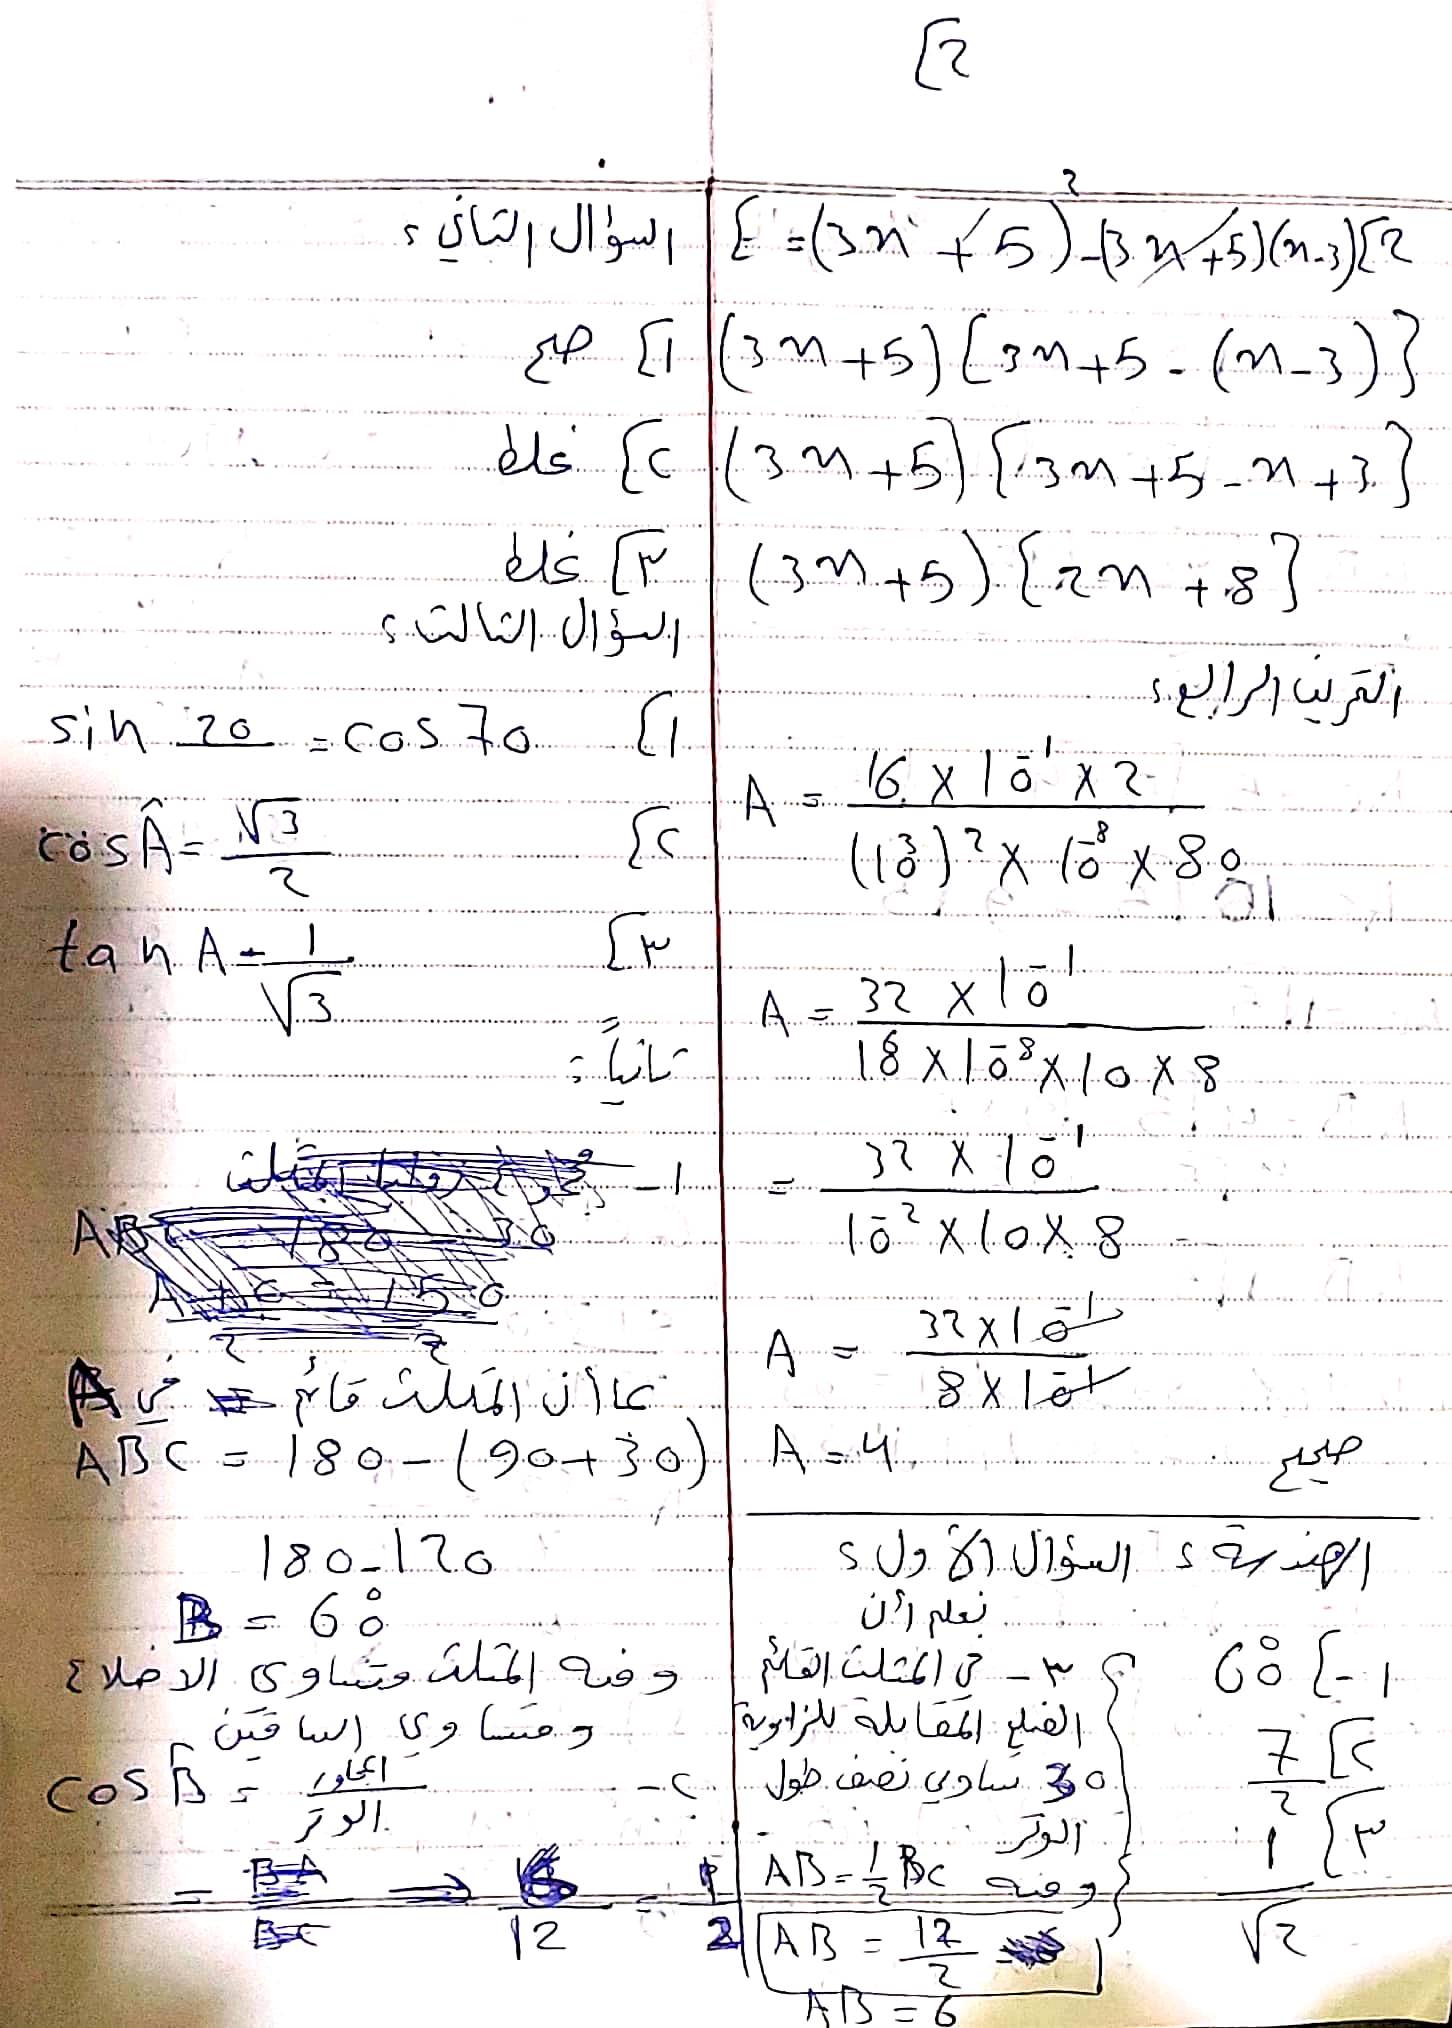 2]
E = (3x + 5)² - (3x + 5)(x - 3) [2
(3x + 5) [3x + 5 - (x - 3)]
(3x + 5) [3x + 5 - x + 3]
(3x + 5) [2x + 8]
التمرين الرابع:
A = \frac{16 × 10^{-1} × 2}{(10^3)^2 × 10^{-8} × 80}
A = \frac{32 × 10^{-1}}{10^6 × 10^{-8} × 10 × 8}
= \frac{32 × 10^{-1}}{10^{-2} × 10 × 8}
A = \frac{32 × 10^{-1}}{8 × 10^{-1}}
A = 4 صحيح
الهندسة: السؤال الأول:
1- [60°
2] \frac{7}{2}
3] \frac{1}{\sqrt{2}}
نعلم أن
٣- في المثلث القائم
الضلع المقابلة للزاوية
30 تساوي نصف طول
الوتر
ومنه AB = \frac{1}{2} BC
AB = \frac{12}{2}
AB = 6
السؤال الثاني:
١] صح
٢] غلط
٣] غلط
السؤال الثالث:
١] sin 20 = cos 70
٢] cos Â = \frac{\sqrt{3}}{2}
٣] tan A = \frac{1}{\sqrt{3}}
ثانياً:
١-
بما أن المثلث قائم في A
ABC = 180 - (90 + 30)
180 - 120
B = 60°
ومنه المثلث متساوي الاضلاع
ومتساوي الساقين
٢- cos B̂ = \frac{المجاور}{الوتر}
= \frac{BA}{BC} ⇒ \frac{6}{12} = \frac{1}{2}